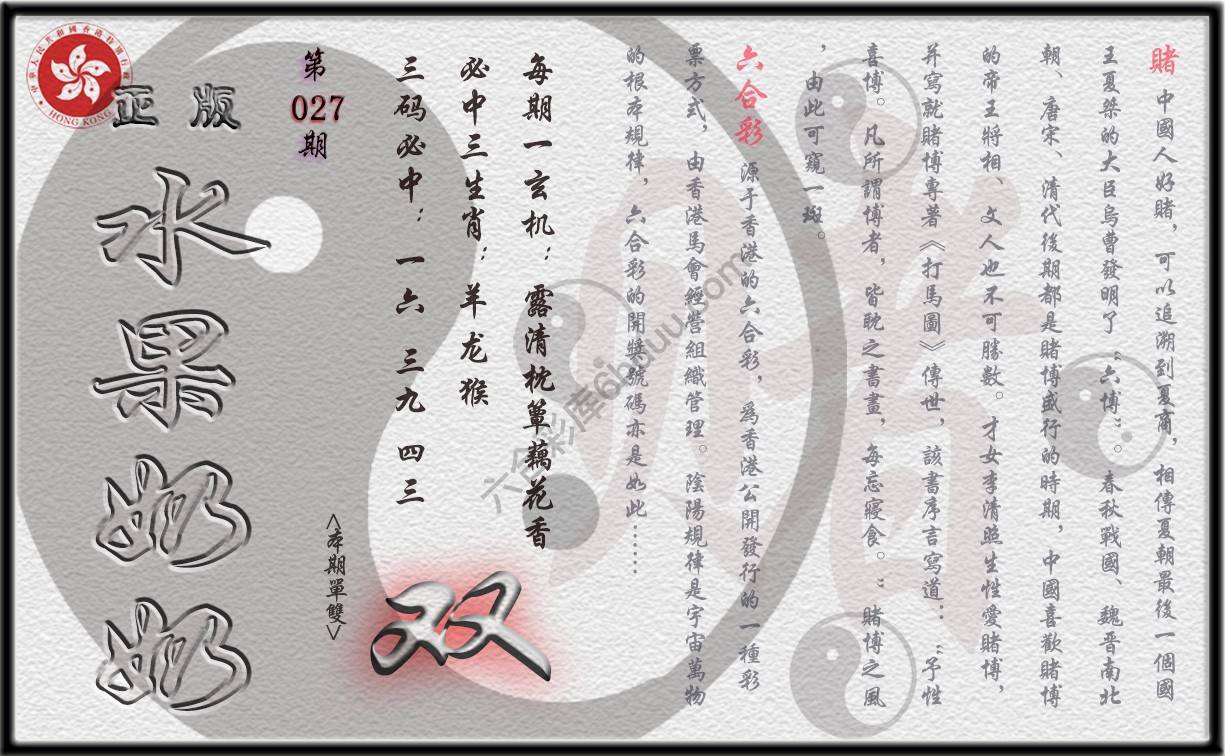 賭 中國人好賭，可以追溯到夏商，相傳夏朝最後一個國
王夏桀的大臣烏曹發明了“六博”。春秋戰國、魏晉南北
朝、唐宋、清代後期都是賭博盛行的時期，中國喜歡賭博
的帝王將相、文人也不可勝數。才女李清照生性愛賭博，
并寫就賭博專著《打馬圖》傳世，該書序言寫道：“予性
喜博。凡所謂博者，皆耽之書畫，每忘寢食。”賭博之風
，由此可窺一斑。
六合彩 源于香港的六合彩，為香港公開發行的一種彩
票方式，由香港馬會經營組織管理。陰陽規律是宇宙萬物
的根本規律，六合彩的開獎號碼亦是如此……
每期一玄机：露清枕簟藕花香
必中三生肖：羊龙猴
三码必中：一六 三九 四三
双
<本期單雙>
第
027
期
正版
水果奶奶
HONG KONG
六合彩库6hduu.com